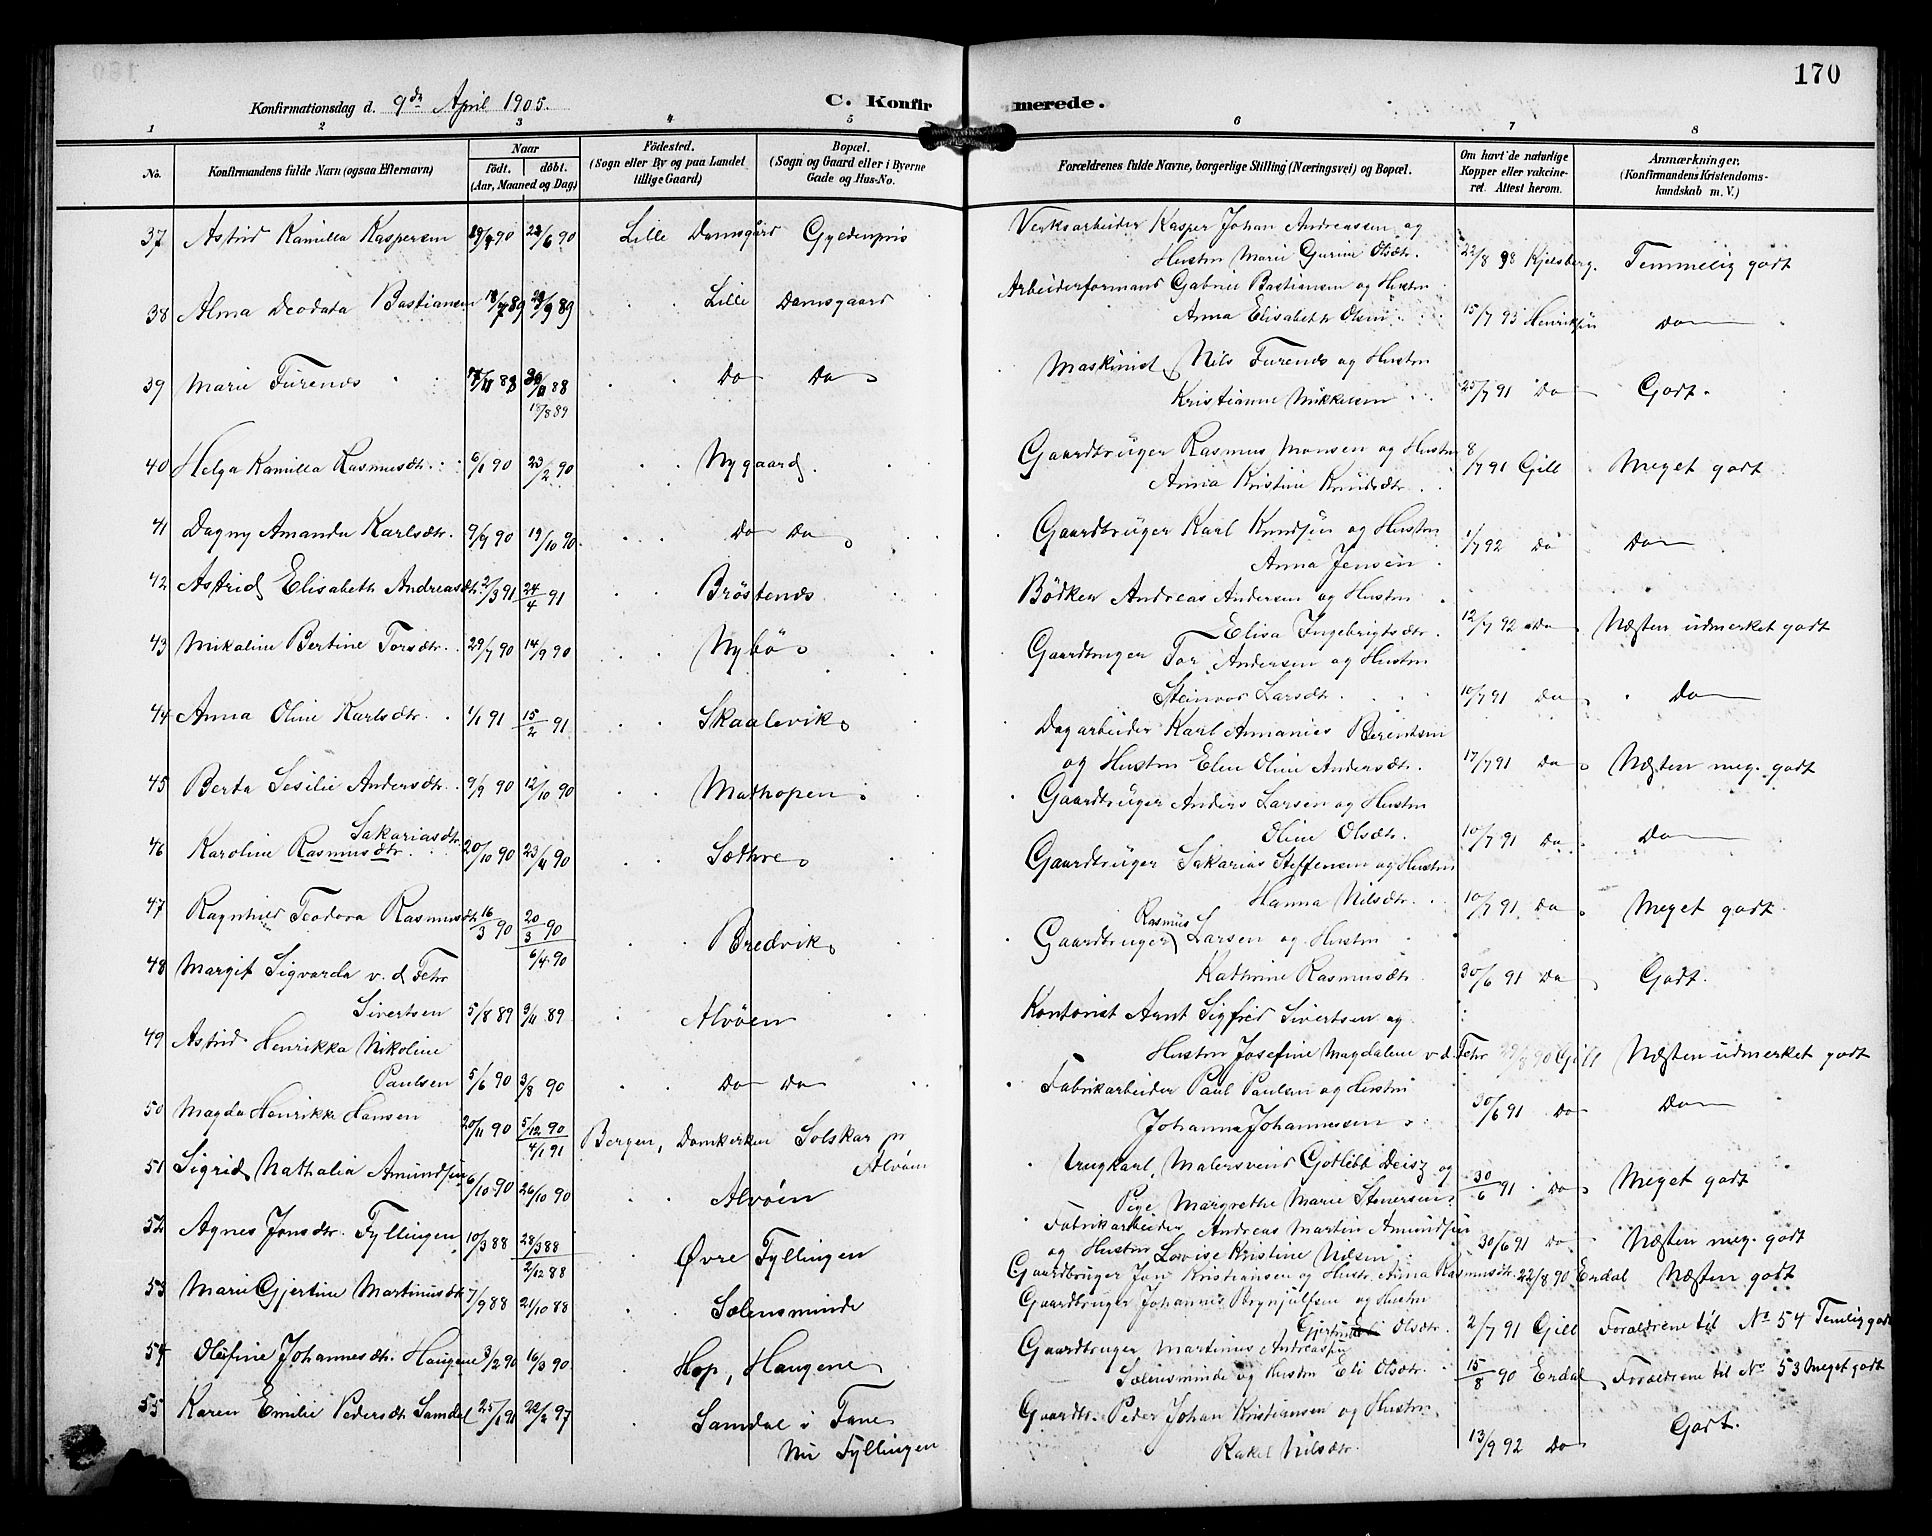 170
Konfirmationsdag d. 9de April 1905.
C. Konfirmerede.
1 2 3 4 5 6 7 8
No. Konfirmandens fulde Navn (ogsaa Efternavn)
Naar
födt. döbt.
(Aar, Maaned og Dag)
Födested.
(Sogn eller By og paa Landet
tillige Gaard)
Bopæl.
(Sogn og Gaard eller i Byerne
Gade og Hus-No.
Forældrenes fulde Navne, borgerlige Stilling (Næringsvei) og Bopæl.
Om havt de naturlige
Kopper eller vakcine-
ret. Attest herom.
Anmærkninger.
(Konfirmandens Kristendoms-
kundskab m. V.)
37 Astrid Kamilla Kaspersen 90 90 Lille Damsgård Gyldenpris Verksarbeider Kasper Johan Andreassen og
Hustru Marie Gurine Olsdtr. 22/8 98 Kjelsberg. Temmelig godt
38 Alma Deodata Bastiansen 18/7 89 89 Lille Damsgaard Arbeiderformand Gabriel Bastiansen og Hustru
Anna Elisabeth Olsen 15/7 93 Henriksen Do
39 Marie Furends 88 30/11 88 Do Do Maskinist Nils Furends og Hustru
19/8 89
Kristianne Mikkelsen 25/7 91 Do Godt.
40 Helga Kamilla Rasmusdtr. 6/1 90 23/2 90 Nygaard Gaardbruger Rasmus Monsen og Hustru
Anna Kristine Knudsdtr. 8/7 91 Gill Meget godt
41 Dagny Amanda Karlsdtr. 9/7 90 19/10 90. Do Do Gaardbruger Karl Knudsen og Hustru
Anna Jensen 1/7 92 Do Do
42 Astrid Elisabeth Andreasdtr. 2/3 91 24/4 91 Bröstends Bödker Andreas Andersen og Hustru
Elisa Ingebrigtsdtr. 12/7 92 Do Næsten udmerket godt
43 Mikaline Bertine Torsdtr. 29/7 90 14/9 90 Nybö Gaardbruger Tor Andersen og Hustru
Steinvor Larsdtr. 10/7 91 Do Do
44 Anna Oline Karlsdtr. 1/1 91 15/2 91 Skaalevik Dagarbeider Karl Annanies Berentsen
og Hustru Elen Oline Andersdtr. 17/7 91 Do Næsten meg. godt
45 Berta Sesilie Andersdtr. 9/9 90 12/10 90 Mathopen Gaardbruger Anders Larsen og Hustru
Oline Olsdtr. 10/7 91 Do Do
46 Karoline Rasmusdtr. Sakariasdtr. 20/10 90 23/11 90 Sæthre Gaardbruger Sakarias Steffensen og Hustru
Hanna Nilsdtr. 10/7 91 Do Meget godt.
47 Ragnhild Teodora Rasmusdtr. 16/3 90 20/3 90 Bredvik Gaardbruger Rasmus Larsen og Hustru
6/4 90
Kathrine Rasmusdtr. 30/6 91 Do Godt.
48 Margit Sigvarda v. d Fehr
Sivertsen 5/8 89 3/11 89 Alvöen Kontorist Arnt Sigfred Sivertsen og
Hustru Josefine Magdalene v. d. Fehr 90 Gill Næsten udmerket godt
49 Astrid Henrikka Nikoline
Paulsen 5/6 90 3/8 90 Do Do Fabrikarbeider Paul Paulsen og Hustru
Johanna Johannessen 30/6 91 Do Do
50 Magda Henrikke Hansen 20/11 90 5/12 90 Bergen, Domkirken Solskar pr
4/1 91
Alvöen
Ungkarl, Malersvend Gotlibb Deisz og
Pige Margrethe Marie Stenersen 30/6 91 Do Meget godt
51 Sigrid Nathalia Amundsen 6/10 90 26/10 90 Alvöen Fabrikarbeider Andreas Martin Amundsen
og Hustru Lovise Kristine Nilsen 30/6 91 Do Næsten meg. godt
52 Agnes Jonsdtr. Fyllingen 10/3 88 28/3 88 Övre Fyllingen Gaardbruger Jon Kristiansen og Hustr. Anna Rasmusdtr. 22/8 90 Erdal Næsten godt
2/12 88
53 Marie Gjertine Martinusdtr. 7/9 88 21/10 88 Sælensminde Gaardbruger Johannes Brynjulfsen og Hustru
Gjertine Olsdtr. 2/7 91 Gill Forældrene til No 54 Temlig godt
54 Olefine Johannesdtr. Haugene 3/2 90 16/3 90 Hop, Haugene Gaardbruger Martinus Andreassen
Sælensminde og Hustru Eli Olsdtr. 15/8 90 Erdal Forældrene til No 53 meget godt
55 Karen Emilie Pedersdtr. Samdal 25/1 91 22/2 97 Samdal i Fane Gaardbr. Peder Johan Kristiansen og Hustru
Nu Fyllingen Rakel Nilsdtr. 13/9 92 Do Godt.